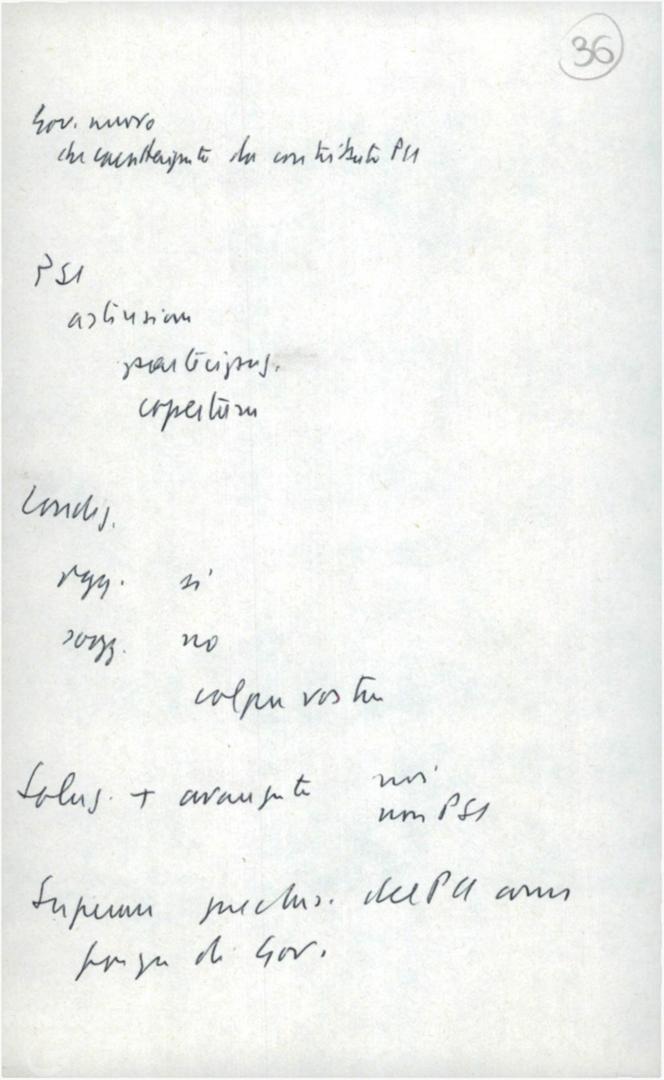 36
Gov. nuovo
che caratterizzato da contributo PCI
PSI
astensione
partecipaz.
copertura
Condiz.
ogg. sì
sogg. no
colpa vostra
Soluz. + avanzate noi
non PSI
Superare preclus. del PCI come
forza di Gov.